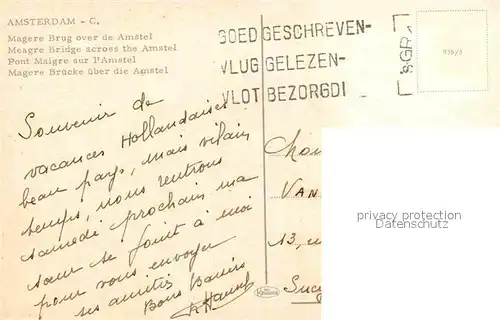 AMSTERDAM - C.
Magere Brug over de Amstel
Meagre Bridge across the Amstel
Pont Maigre sur l'Amstel
Magere Brücke über die Amstel
GOED GESCHREVEN-
VLUG GELEZEN-
VLOT BEZORGD!
936/3
Souvenir de
vacances Hollandaises
beau pays, mais vilain
temps, nous rentrons
samedi prochain ma
sœur se joint à moi
pour vous envoyer
ses amitiés
Bons Baisers
VAN
13,
Sucy
privacy protection
(DSGVO)